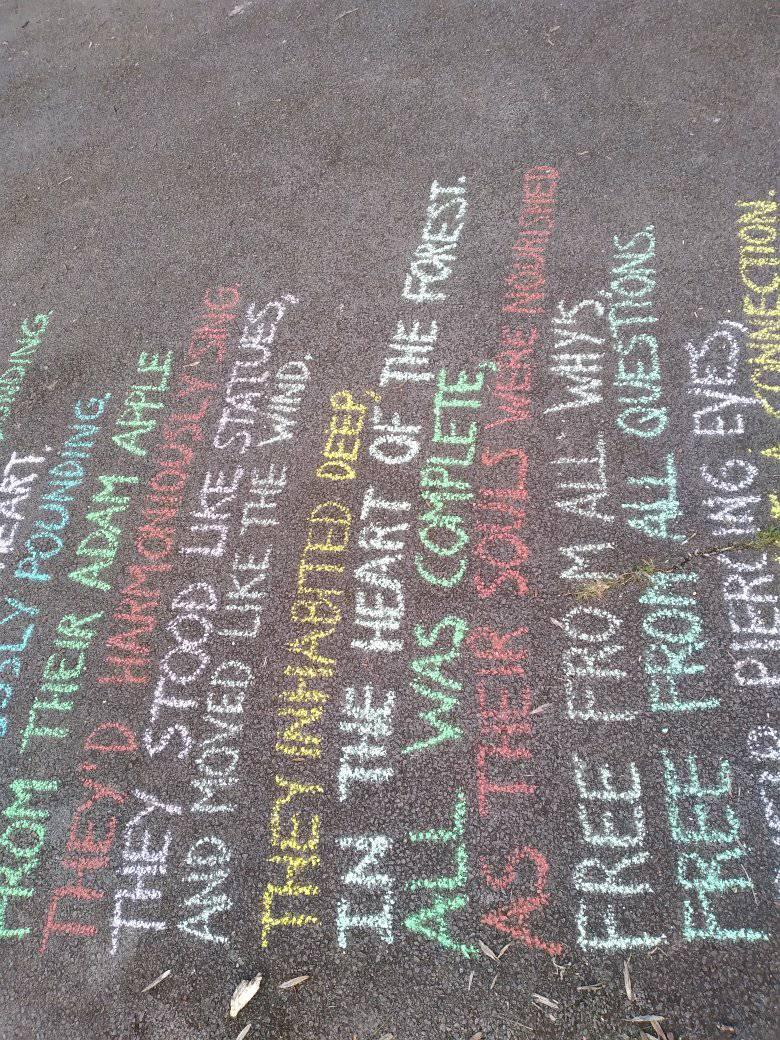 POUNDING,
FROM THEIR ADAM APPLE
THEY'D HARMONIOUSLY SING.
THEY STOOD LIKE STATUES,
AND MOVED LIKE THE WIND,
THEY INHABITED DEEP,
IN THE HEART OF THE FOREST.
ALL WAS COMPLETE,
AS THEIR SOULS WERE NOURISHED
FREE FROM ALL WHYS,
FREE FROM ALL QUESTIONS.
PIERCING EYES,
A CONNECTION.